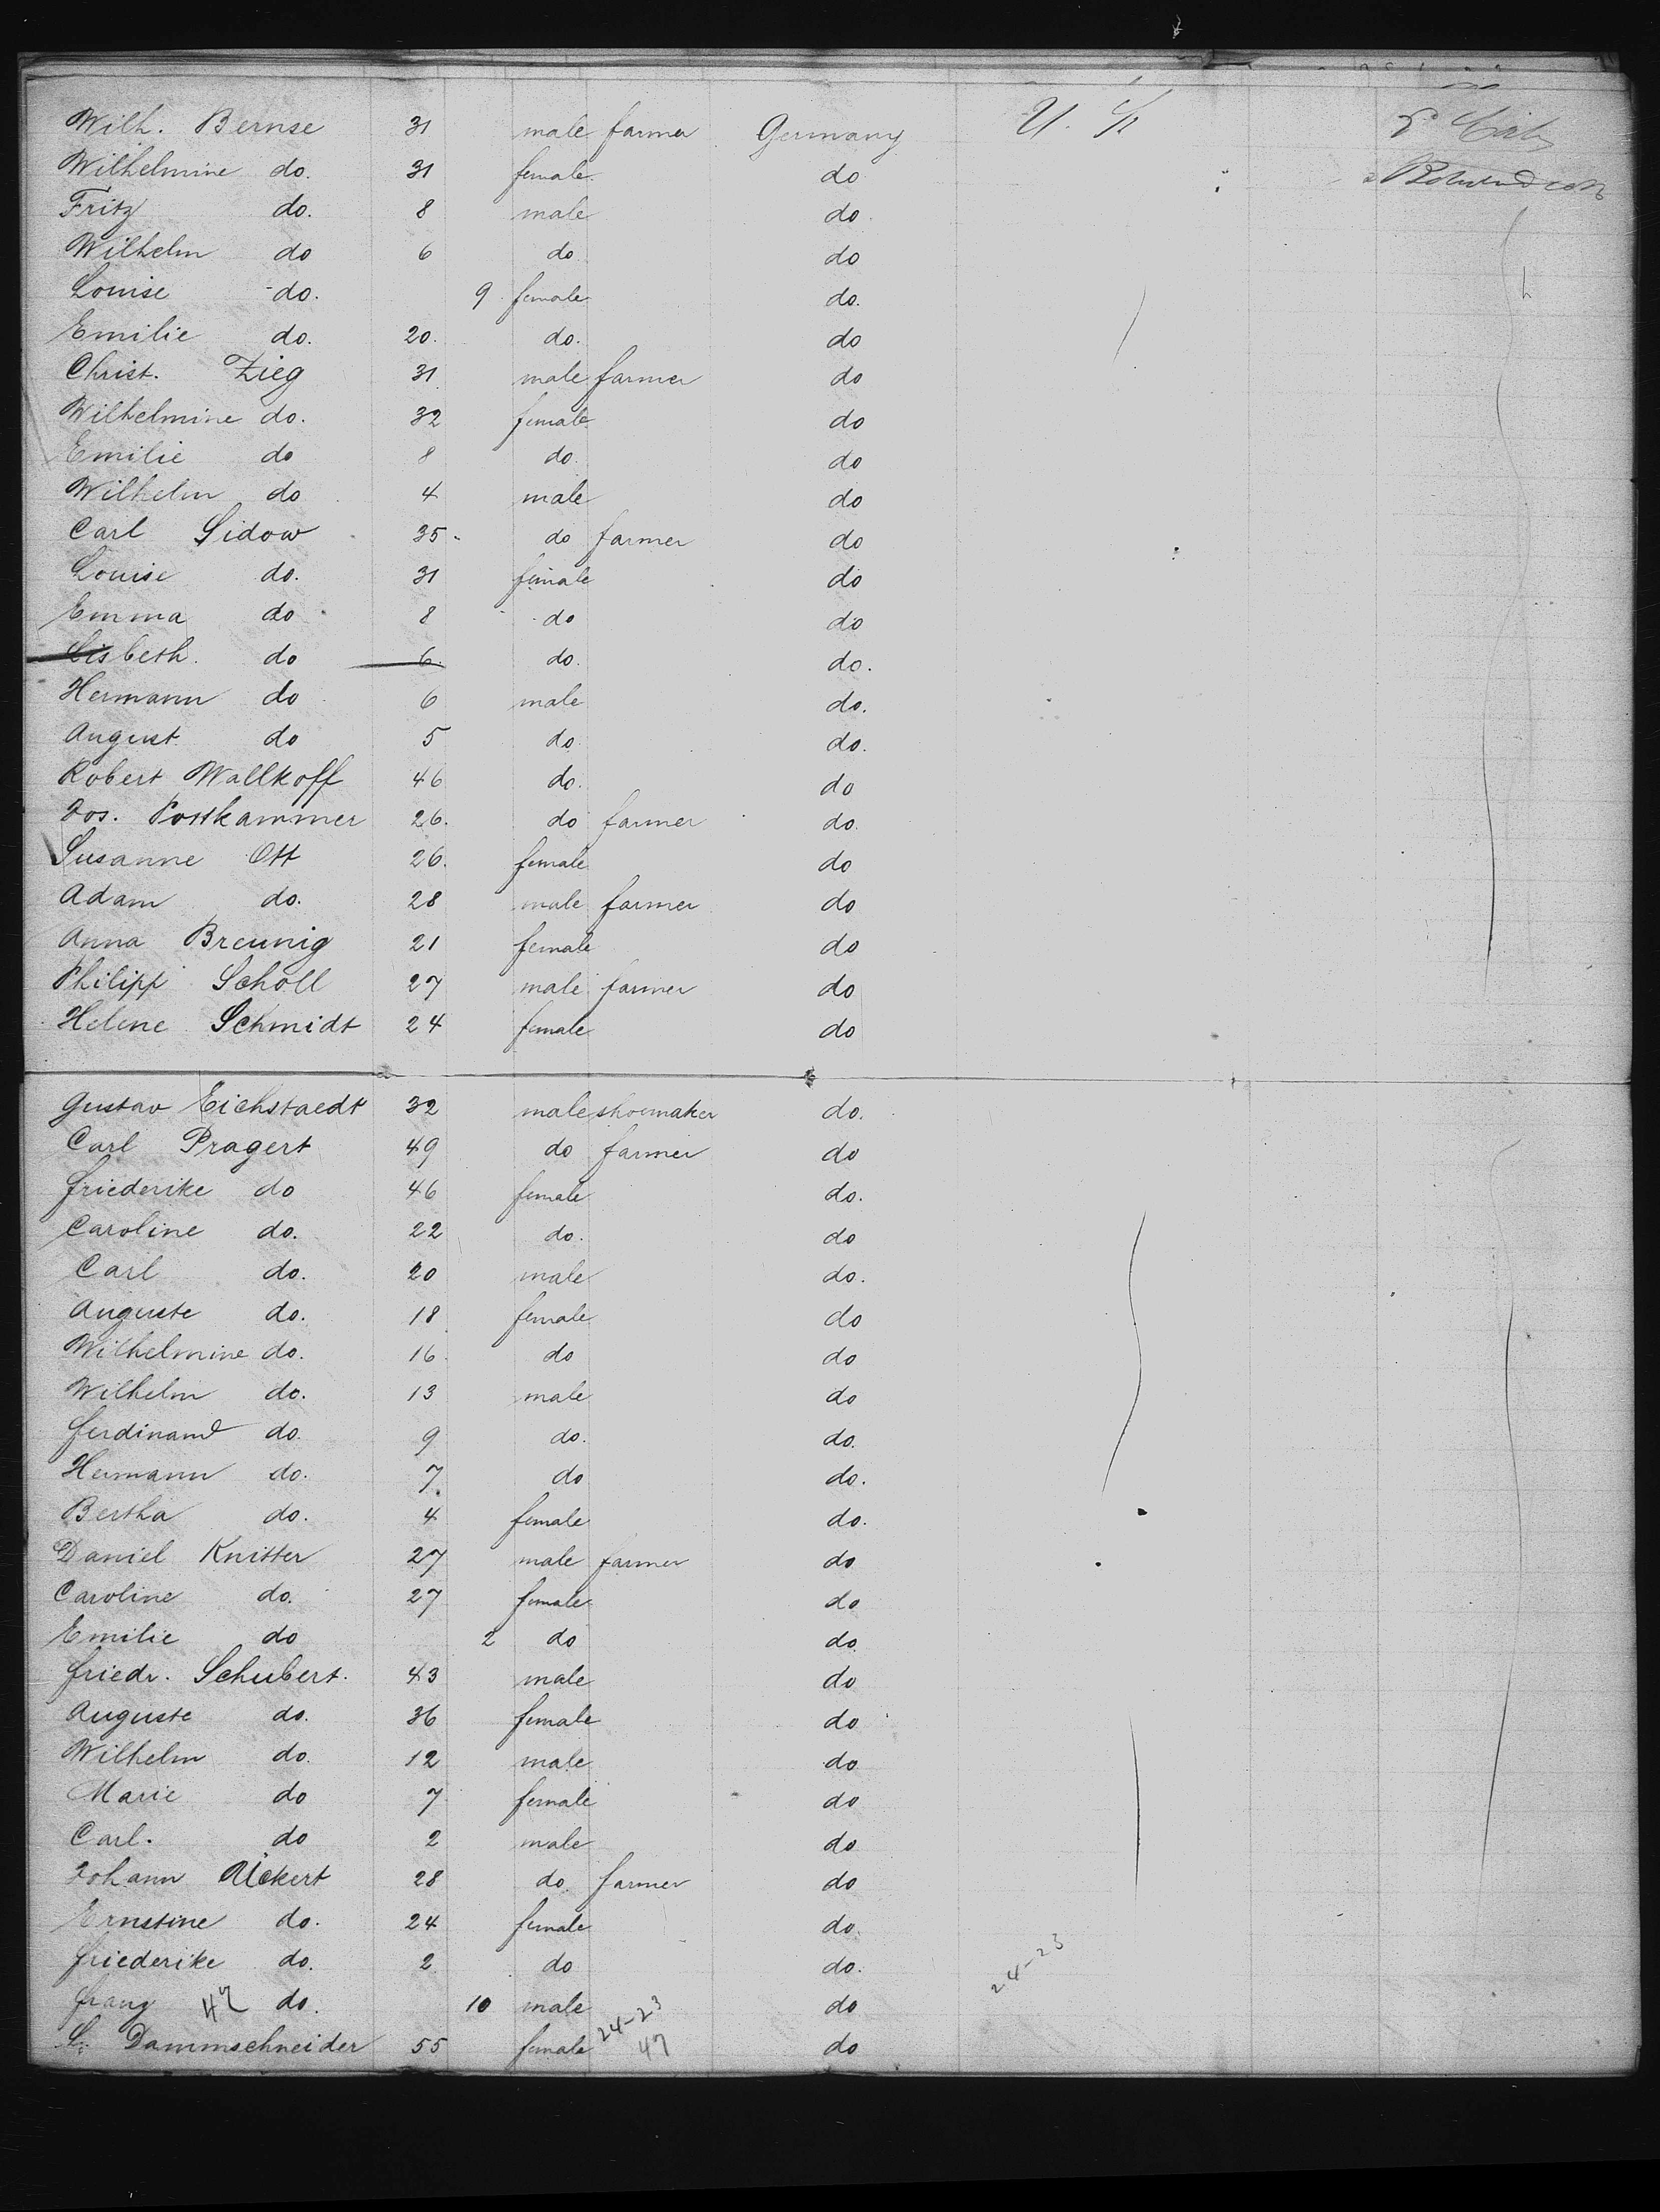 Wilh. Bernse 31 male farmer Germany U. S.
Wilhelmine do. 31 female do
Fritz do. 8 male do
Wilhelm do 6 do do
Louise do. 9 female do.
Emilie do. 20. do. do
Christ. Zieg 31 male farmer do
Wilhelmine do. 32 female do
Emilie do 8 do. do
Wilhelm do 4 male do
Carl Sidow 35 do farmer do
Louise do. 31 female do
Emma do 8 do do
Lisbeth. do 6. do. do.
Hermann do 6 male do.
August do 5 do do.
Robert Wallkoff 46 do. do
Jos. Posskammer 26. do farmer do.
Susanne Ott 26. female do
Adam do. 28 male farmer do
Anna Breunig 21 female do
Philipp Scholl 27 male farmer do
Helene Schmidt 24 female do
Gustav Eichstaedt 32 male shoemaker do.
Carl Pragert 49 do farmer do
Friederike do 46 female do.
Caroline do. 22 do. do
Carl do. 20 male do.
Auguste do. 18 female do
Wilhelmine do. 16 do do
Wilhelm do. 13 male do
Ferdinand do. 9 do. do.
Hermann do. 7. do do.
Bertha do. 4 female do.
Daniel Knitter 27 male farmer do
Caroline do. 27 female do
Emilie do 2 do do.
Friedr. Schubert. 43 male do
Auguste do. 36 female do
Wilhelm do. 12 male do
Marie do 7 female do
Carl. do 2 male do
Johann Rickert 28 do. farmer do
Ernstine do. 24 female do.
Friederike do. 2 do do. 24-23
Franz 47 do. 10 male 24-23 do
Dammschneider 55 female 47 do